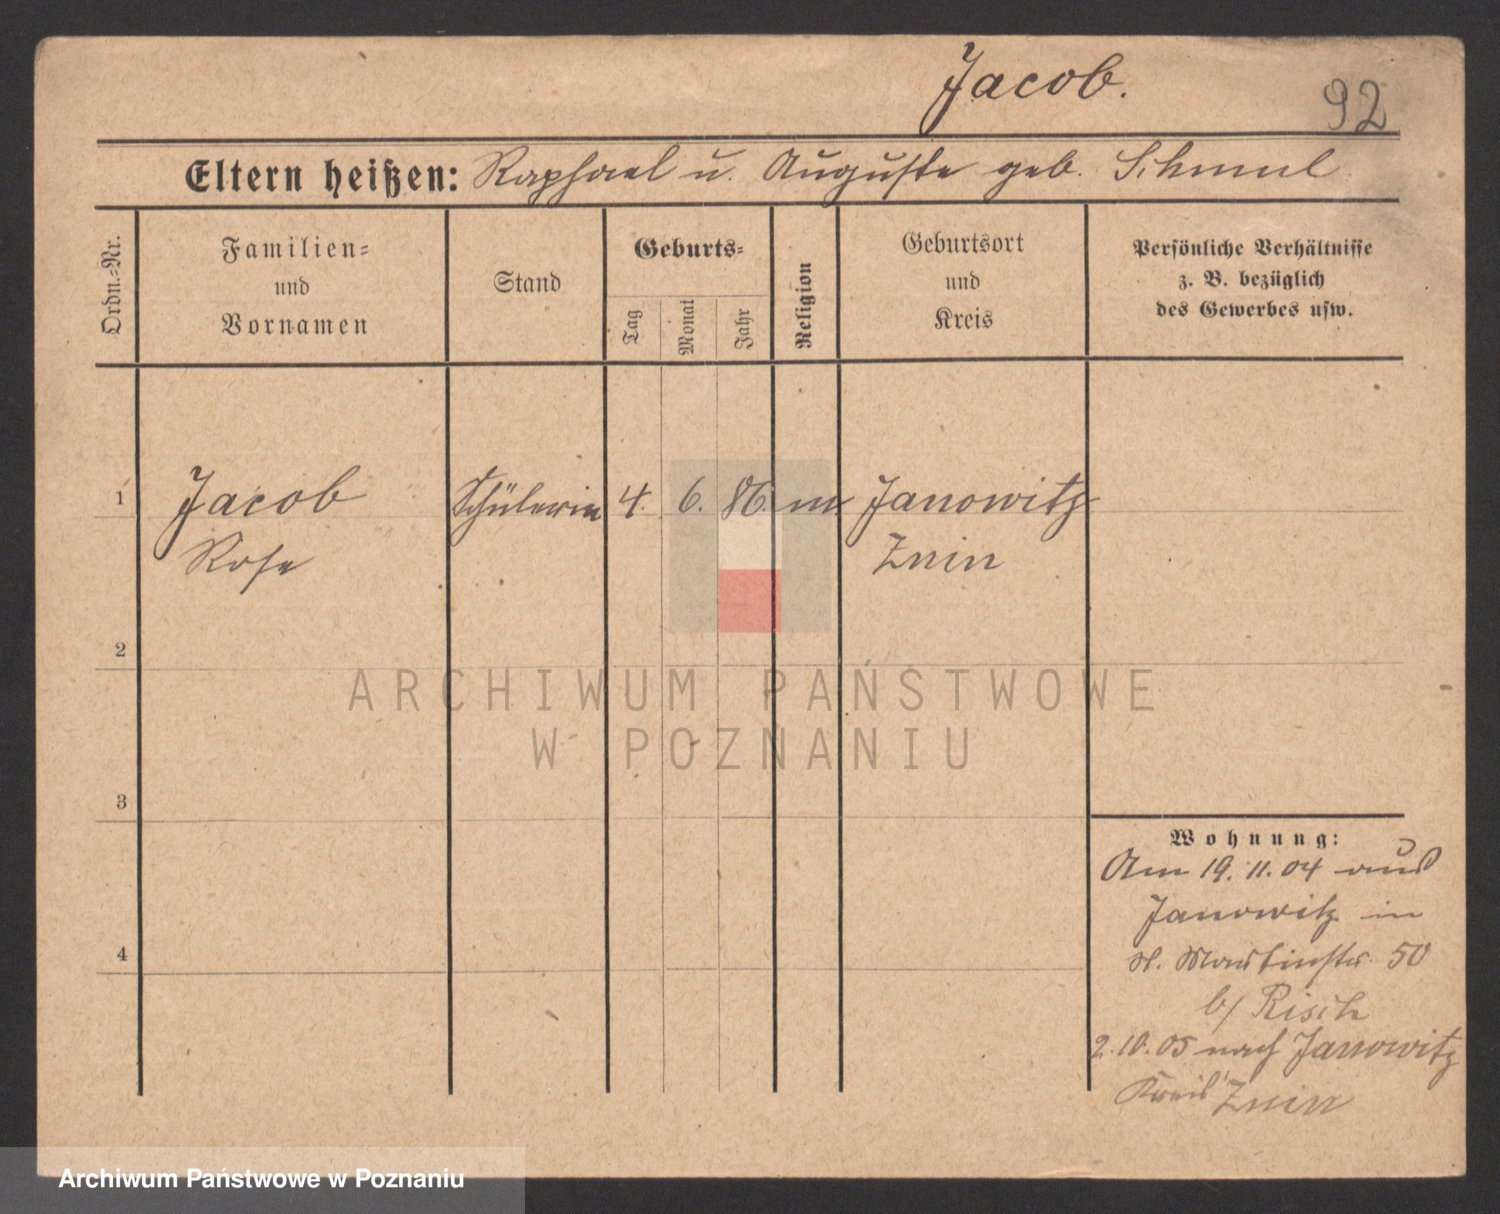 Jacob.
92
Eltern heißen: Raphael u. Auguste geb. Schmul
Ordn.=Nr.
Familien=
und
Vornamen
Stand
Geburts=
Tag
Monat
Jahr
Religion
Geburtsort
und
Kreis
Persönliche Verhältnisse
z. B. bezüglich
des Gewerbes usw.
1 Jacob Schülerin 4. 6. 86. m Janowitz
Rosa Znin
2
ARCHIWUM PAŃSTWOWE
W POZNANIU
3
Wohnung:
Am 19. 11. 04 aus
Janowitz in
4
St. Martinstr. 50
b/ Risch
2.10.05 nach Janowitz
Kreis Znin
Archiwum Państwowe w Poznaniu